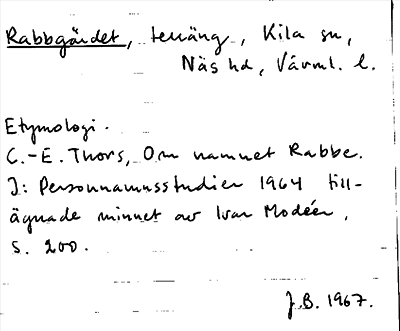 Rabbgärdet, terräng, Kila sn,
Näs hd, Värml. l.
Etymologi.
C.-E. Thors, Om namnet Rabbe.
I: Personnamnsstudier 1964 till-
ägnade minnet av Ivar Modéer,
s. 200.
J.B. 1967.